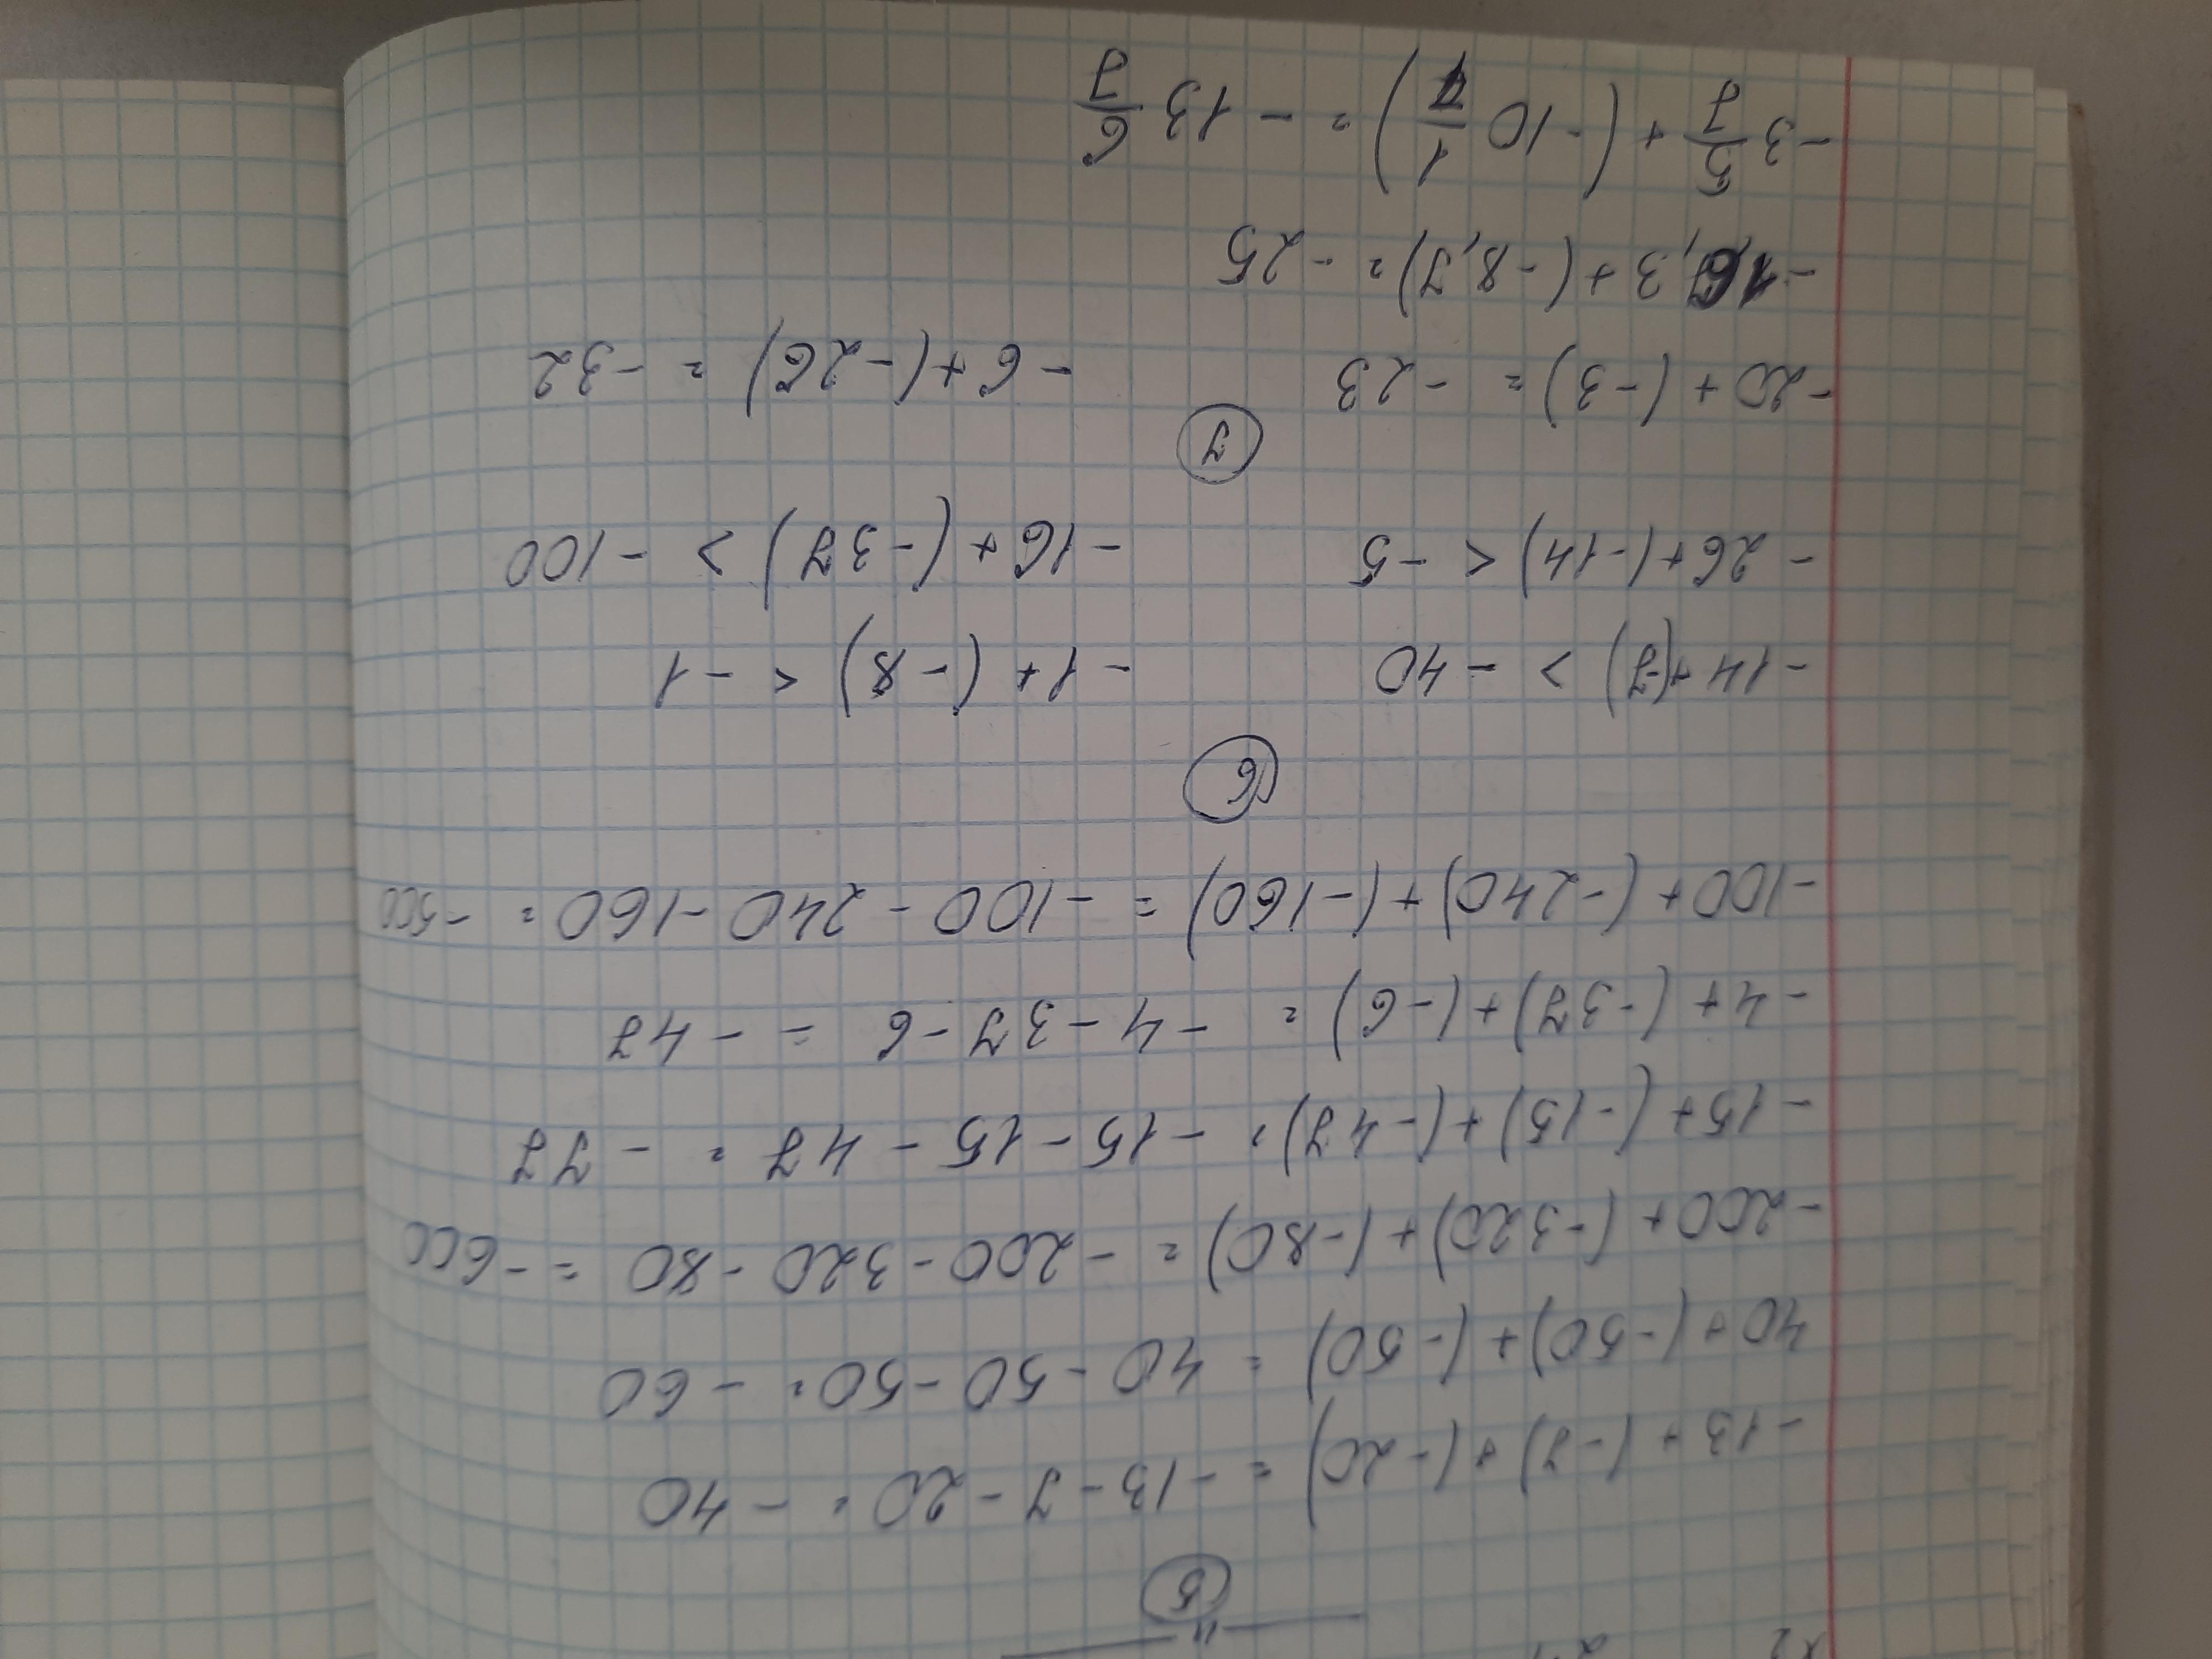 x2 a1
"
5
-13 + (-7) + (-20) = -13 - 7 - 20 = -40
40 + (-50) + (-50) = 40 - 50 - 50 = -60
-200 + (-320) + (-80) = -200 - 320 - 80 = -600
-15 + (-15) + (-47) = -15 - 15 - 47 = -77
-4 + (-37) + (-6) = -4 - 37 - 6 = -47
-100 + (-240) + (-160) = -100 - 240 - 160 = -500
6
-14 + (-7) > -40 -1 + (-8) < -1
-26 + (-14) < -5 -16 + (-37) > -100
7
-20 + (-3) = -23 -6 + (-26) = -32
-16,3 + (-8,7) = -25
-3 5/7 + (-10 1/7) = -13 6/7